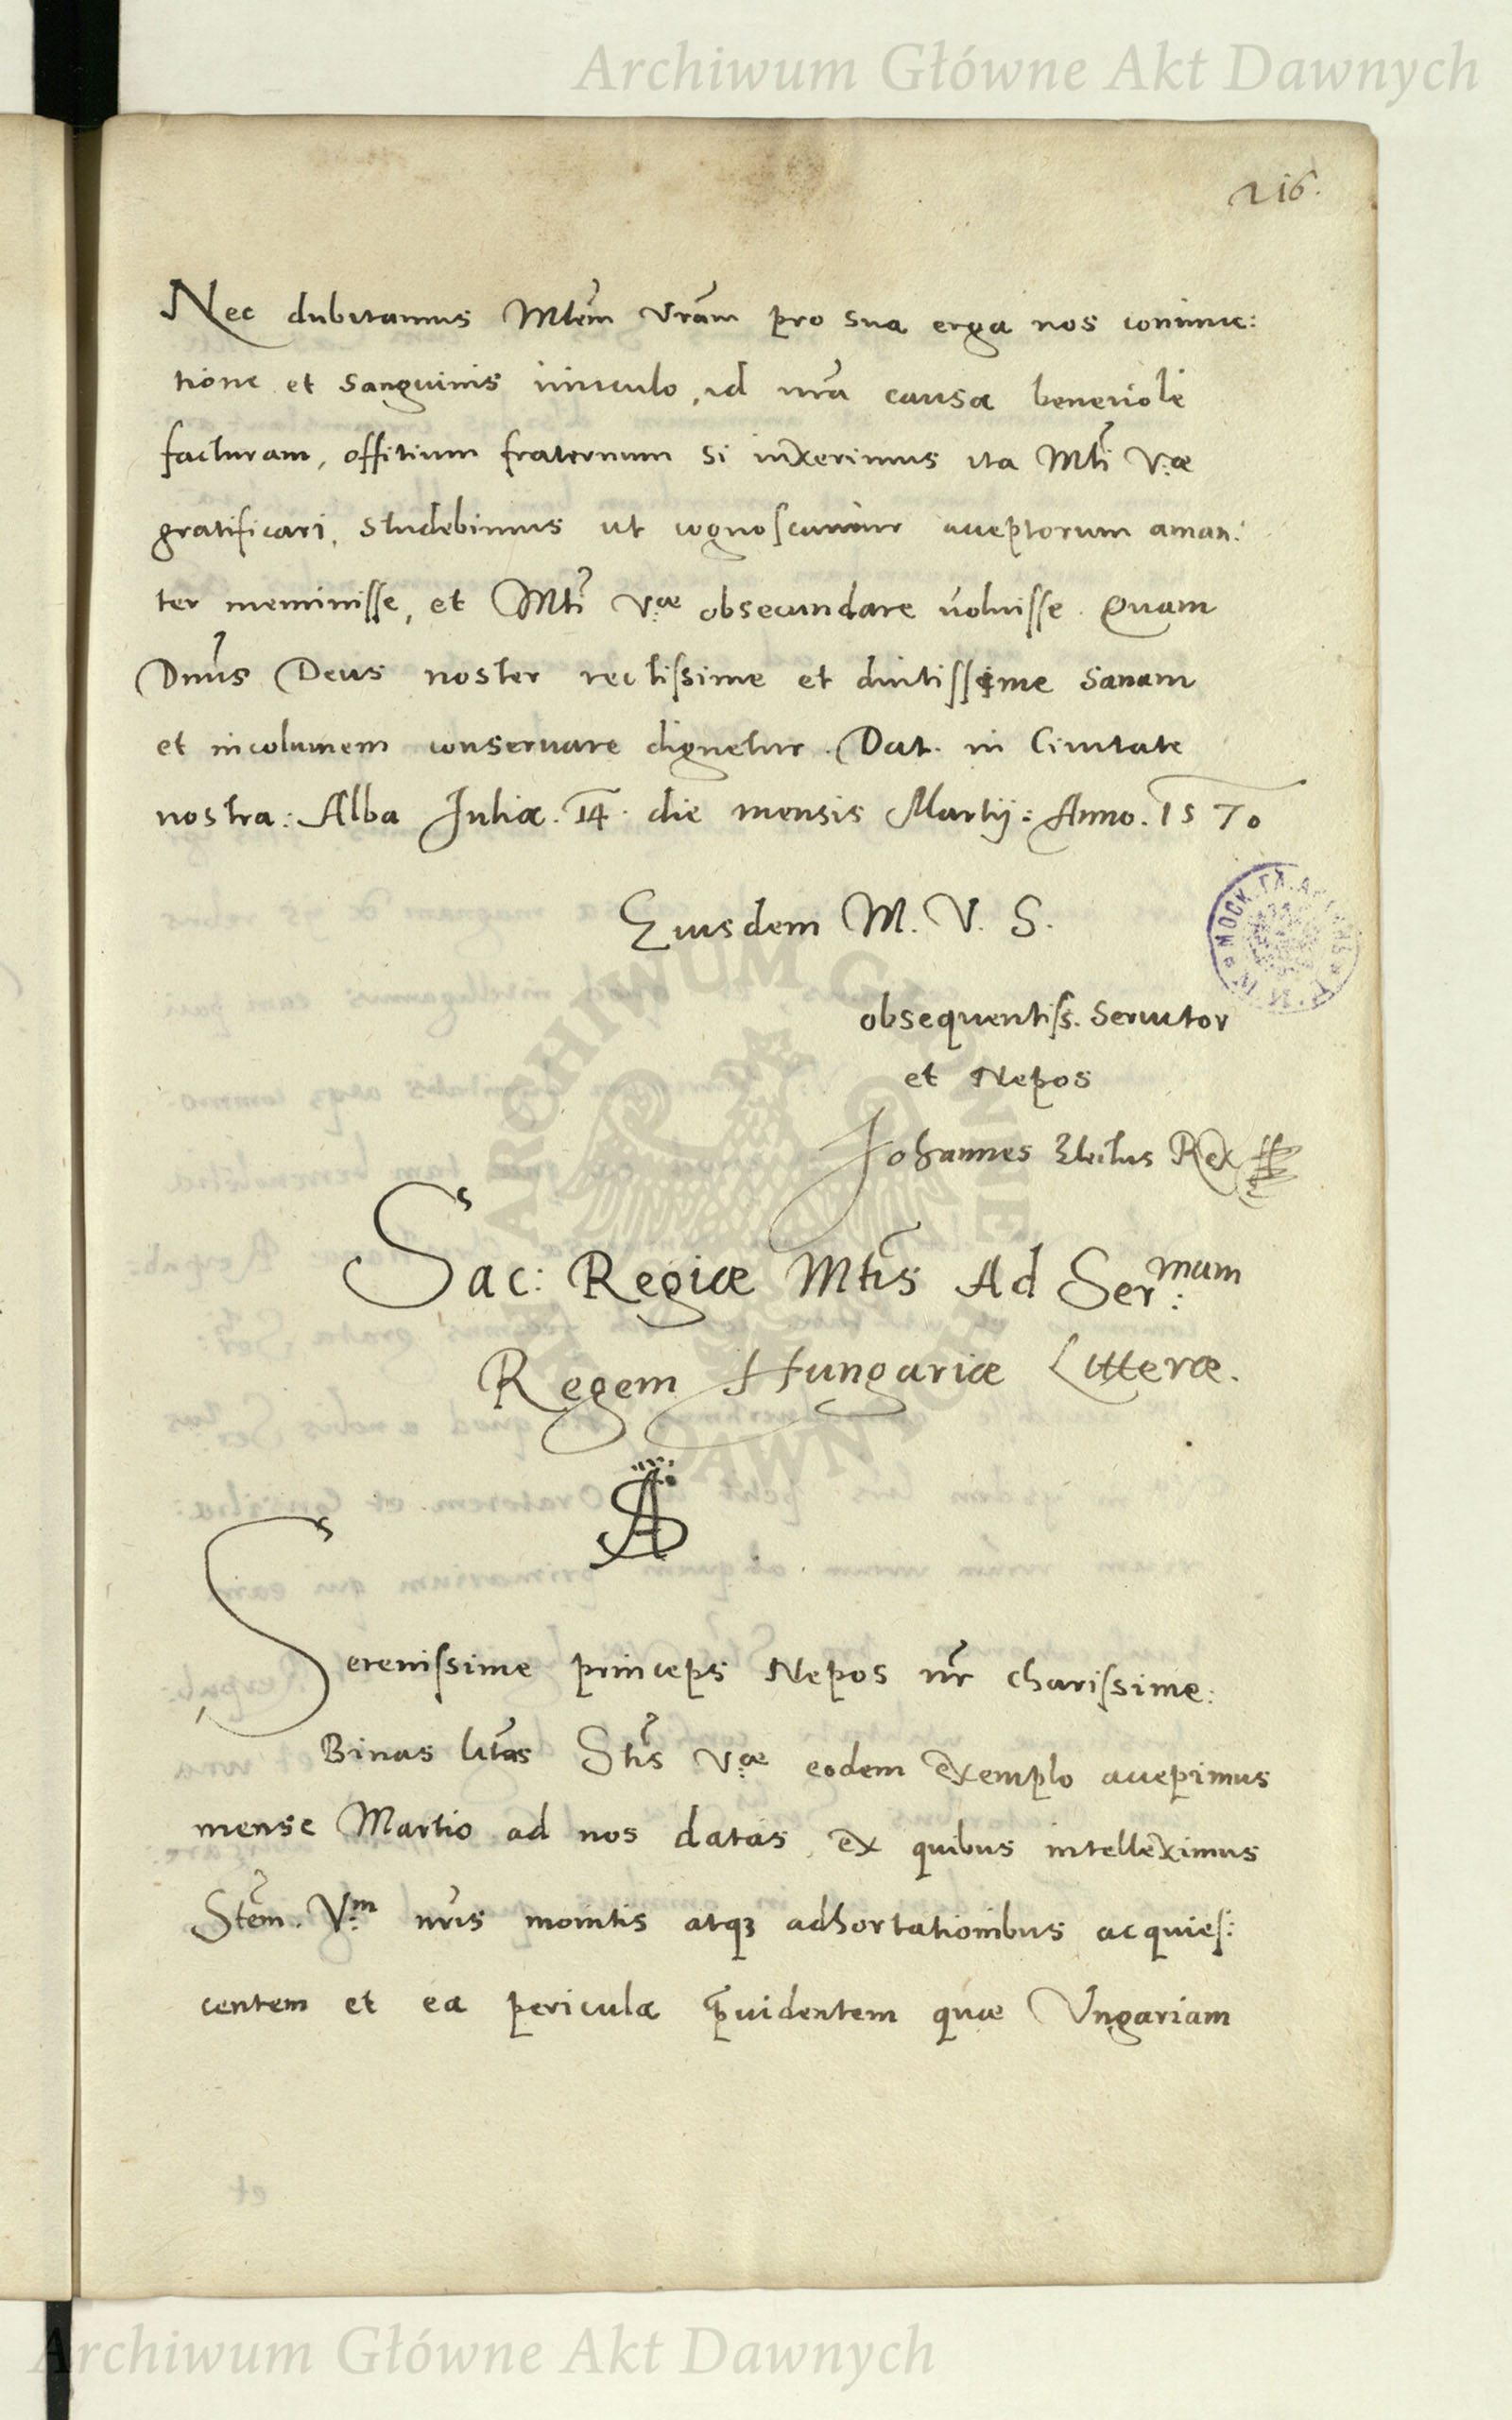 Archiwum Główne Akt Dawnych
216.
Nec dubitamus Mtem Vram pro sua erga nos coniunc:
tione et sanguinis vinculo, id nra causa beneuole
facturam, offitium fraternum si iunxerimus ita Mti V:æ
gratificari, studebimus ut cognoscamur acceptorum aman:
ter meminisse, et Mti V:æ obsecundare voluisse. Quam
Dnus Deus noster rectissime et diutissime sanam
et incolumem conseruare dignetur. Dat. in Ciuitate
nostra: Alba Iuliæ. 14. die mensis Martij: Anno. 1570
Eiusdem M. V. S.
obsequentiss. Seruitor
et Nepos
Johannes Electus Rex
Sac: Regiæ Mtis Ad Ser:mam
Regem Hungariæ Litteræ.
SA
Serenissime princeps Nepos nr charissime:
Binas litas Stis V:æ eodem exemplo accepimus
mense Martio ad nos datas, ex quibus intelleximus
Stem. V:m nris monitis atq3 adhortationibus acquies:
centem et ea pericula pruidentem quæ Vngariam
ARCHIWUM GŁÓWNE AKT DAWNYCH
Archiwum Główne Akt Dawnych